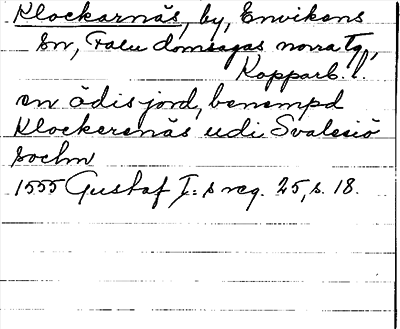 Klockarnäs, by, Envikens
sn, Falu domsagas norra tg,
Kopparb. l.
en ödis jord, benempd
Klockersnäs udi Svalesiö
sochn
1555 Gustaf I:s reg. 25, s. 18.